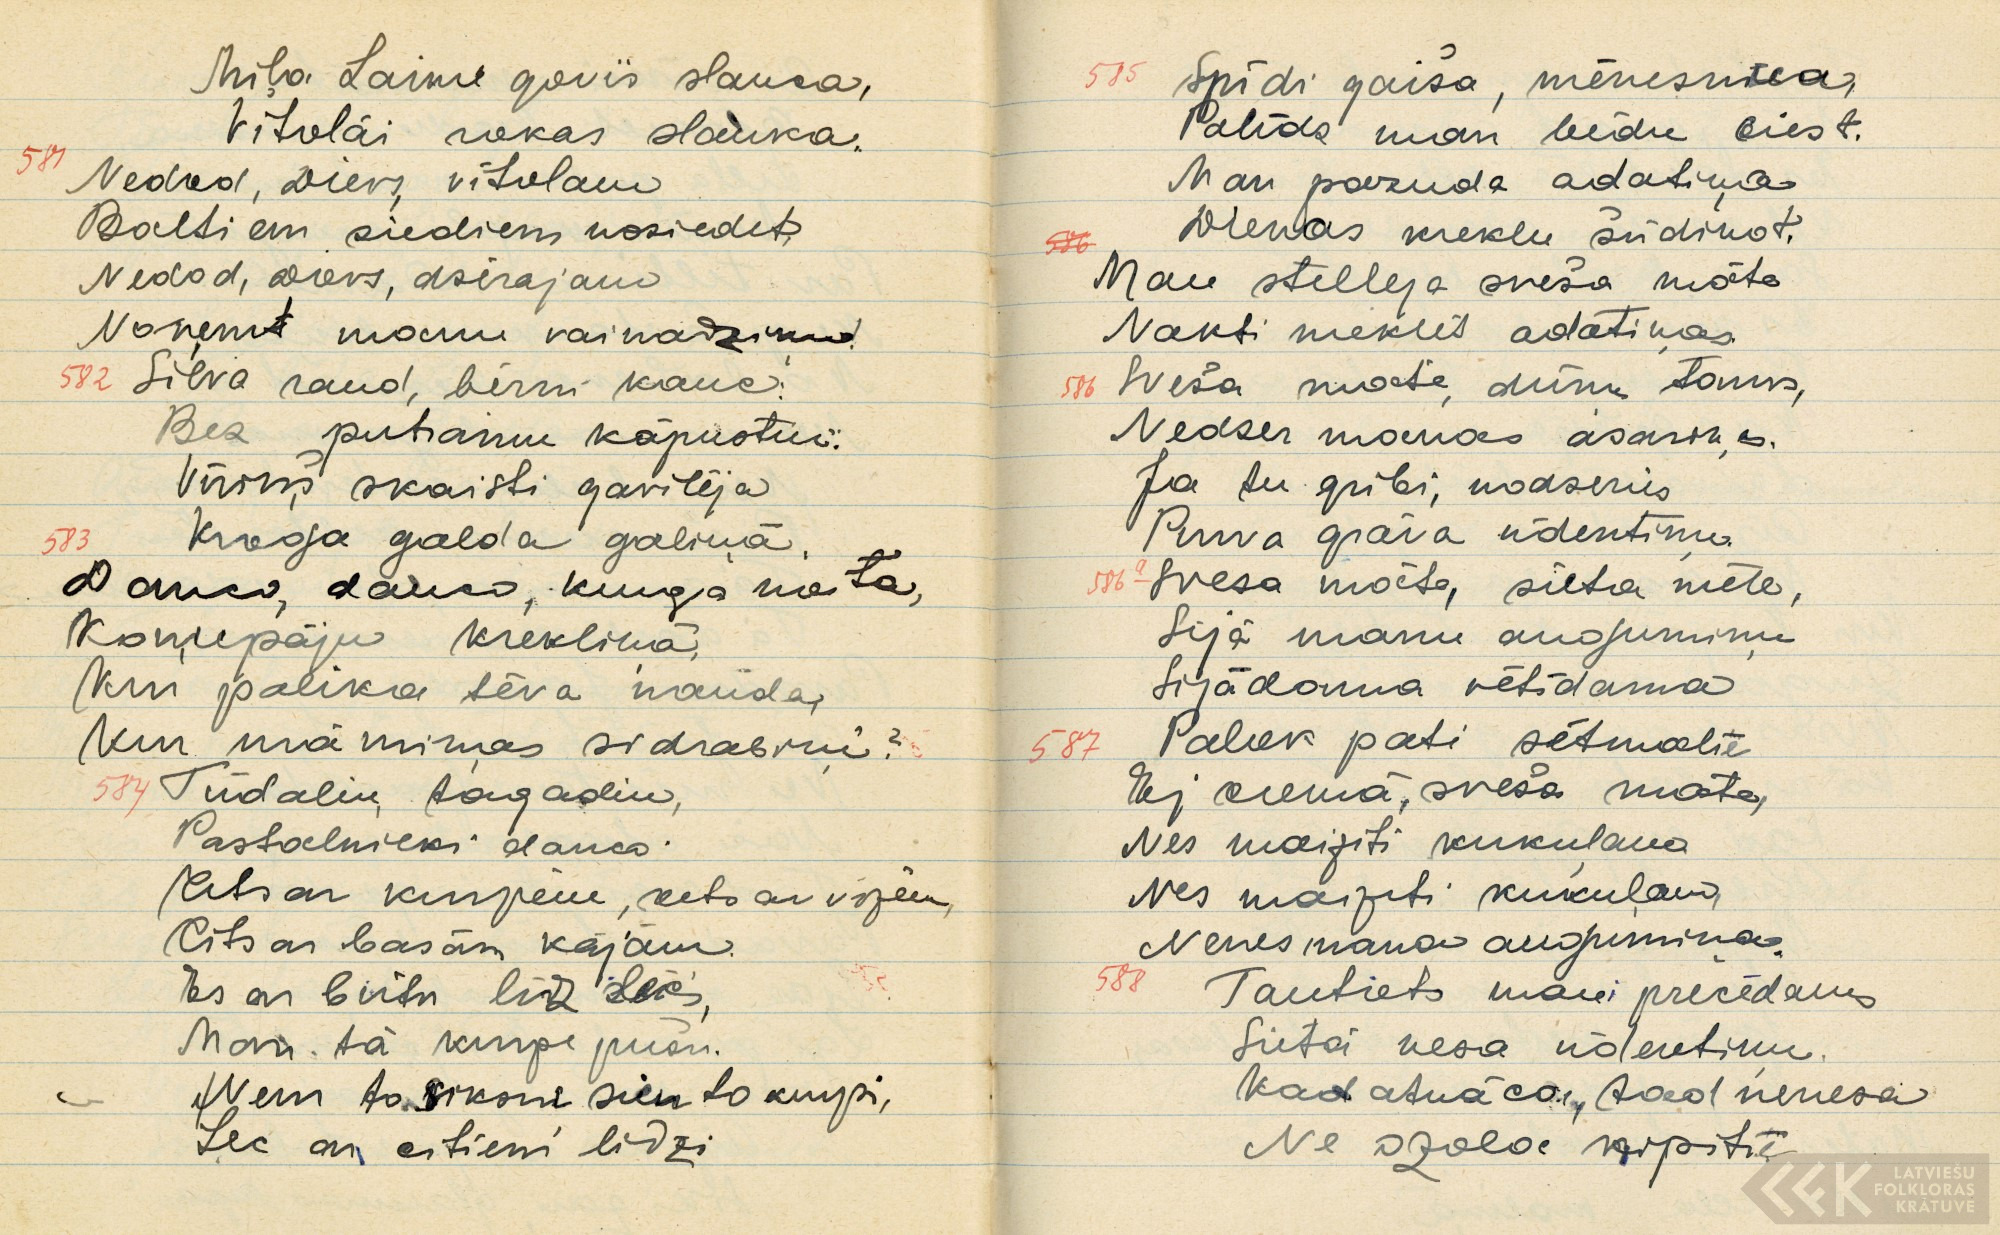 Mīļa Laime govis slauca,
Vītolāi rokas slauka.
581
Nedod, Dievs, vītolam
Baltiem ziediem noziedet,
Nedod, Dievs, dzērajam
Noņemt manu vainadziņu!
582 Silva raud, bērni kauc:
Bez putramu kāpustu:
Vīriņš skaisti gavilēja
583 Kroga galda galiņā.
Danco, danco, kunga māta,
Kaņupāju krekliņā,
Kur palika tēva nauda,
Kur māmiņas sidrabiņi?
584 Tūdaliņ, tagadiņ,
Pastalnieki danco:
Cits ar kurpēm, cits ar vīzēm,
Cits ar basām kājām.
Es ar būtu līdz lēcis,
Man tā kurpe pušu.
Ņem to siksni sien to kurpi,
Lec ar citiem lidzi
585 Spīdi gaiša, mēnesnica,
Palīdz man bēdu ciest.
Man pazuda adatiņa
Dienas kreklu šūdinot.
586
Man stelleja sveša māte
Nakti meklēt adatiņas.
586 Sveša māte, dūņu tārps,
Nedzer manas asariņas.
Ja tu gribi, nodzeries
Purva grāva ūdentiņu.
586a Svesa māte, sieta mēle,
Sijā manu augumiņu
Sijādama vētīdama
587 Paliek pati sētmalīe
Ej ciemā, sveša māte,
Nes maizīti kukuļam
Nes maizīti kukuļam,
Nenes mana augumiņa.
588 Tautiets mani precēdams
Sietā nesa ūdentiņu.
Kad atnāca, tad nenesa
Ne ozola ķipītī
LATVIEŠU
FOLKLORAS
KRĀTUVE